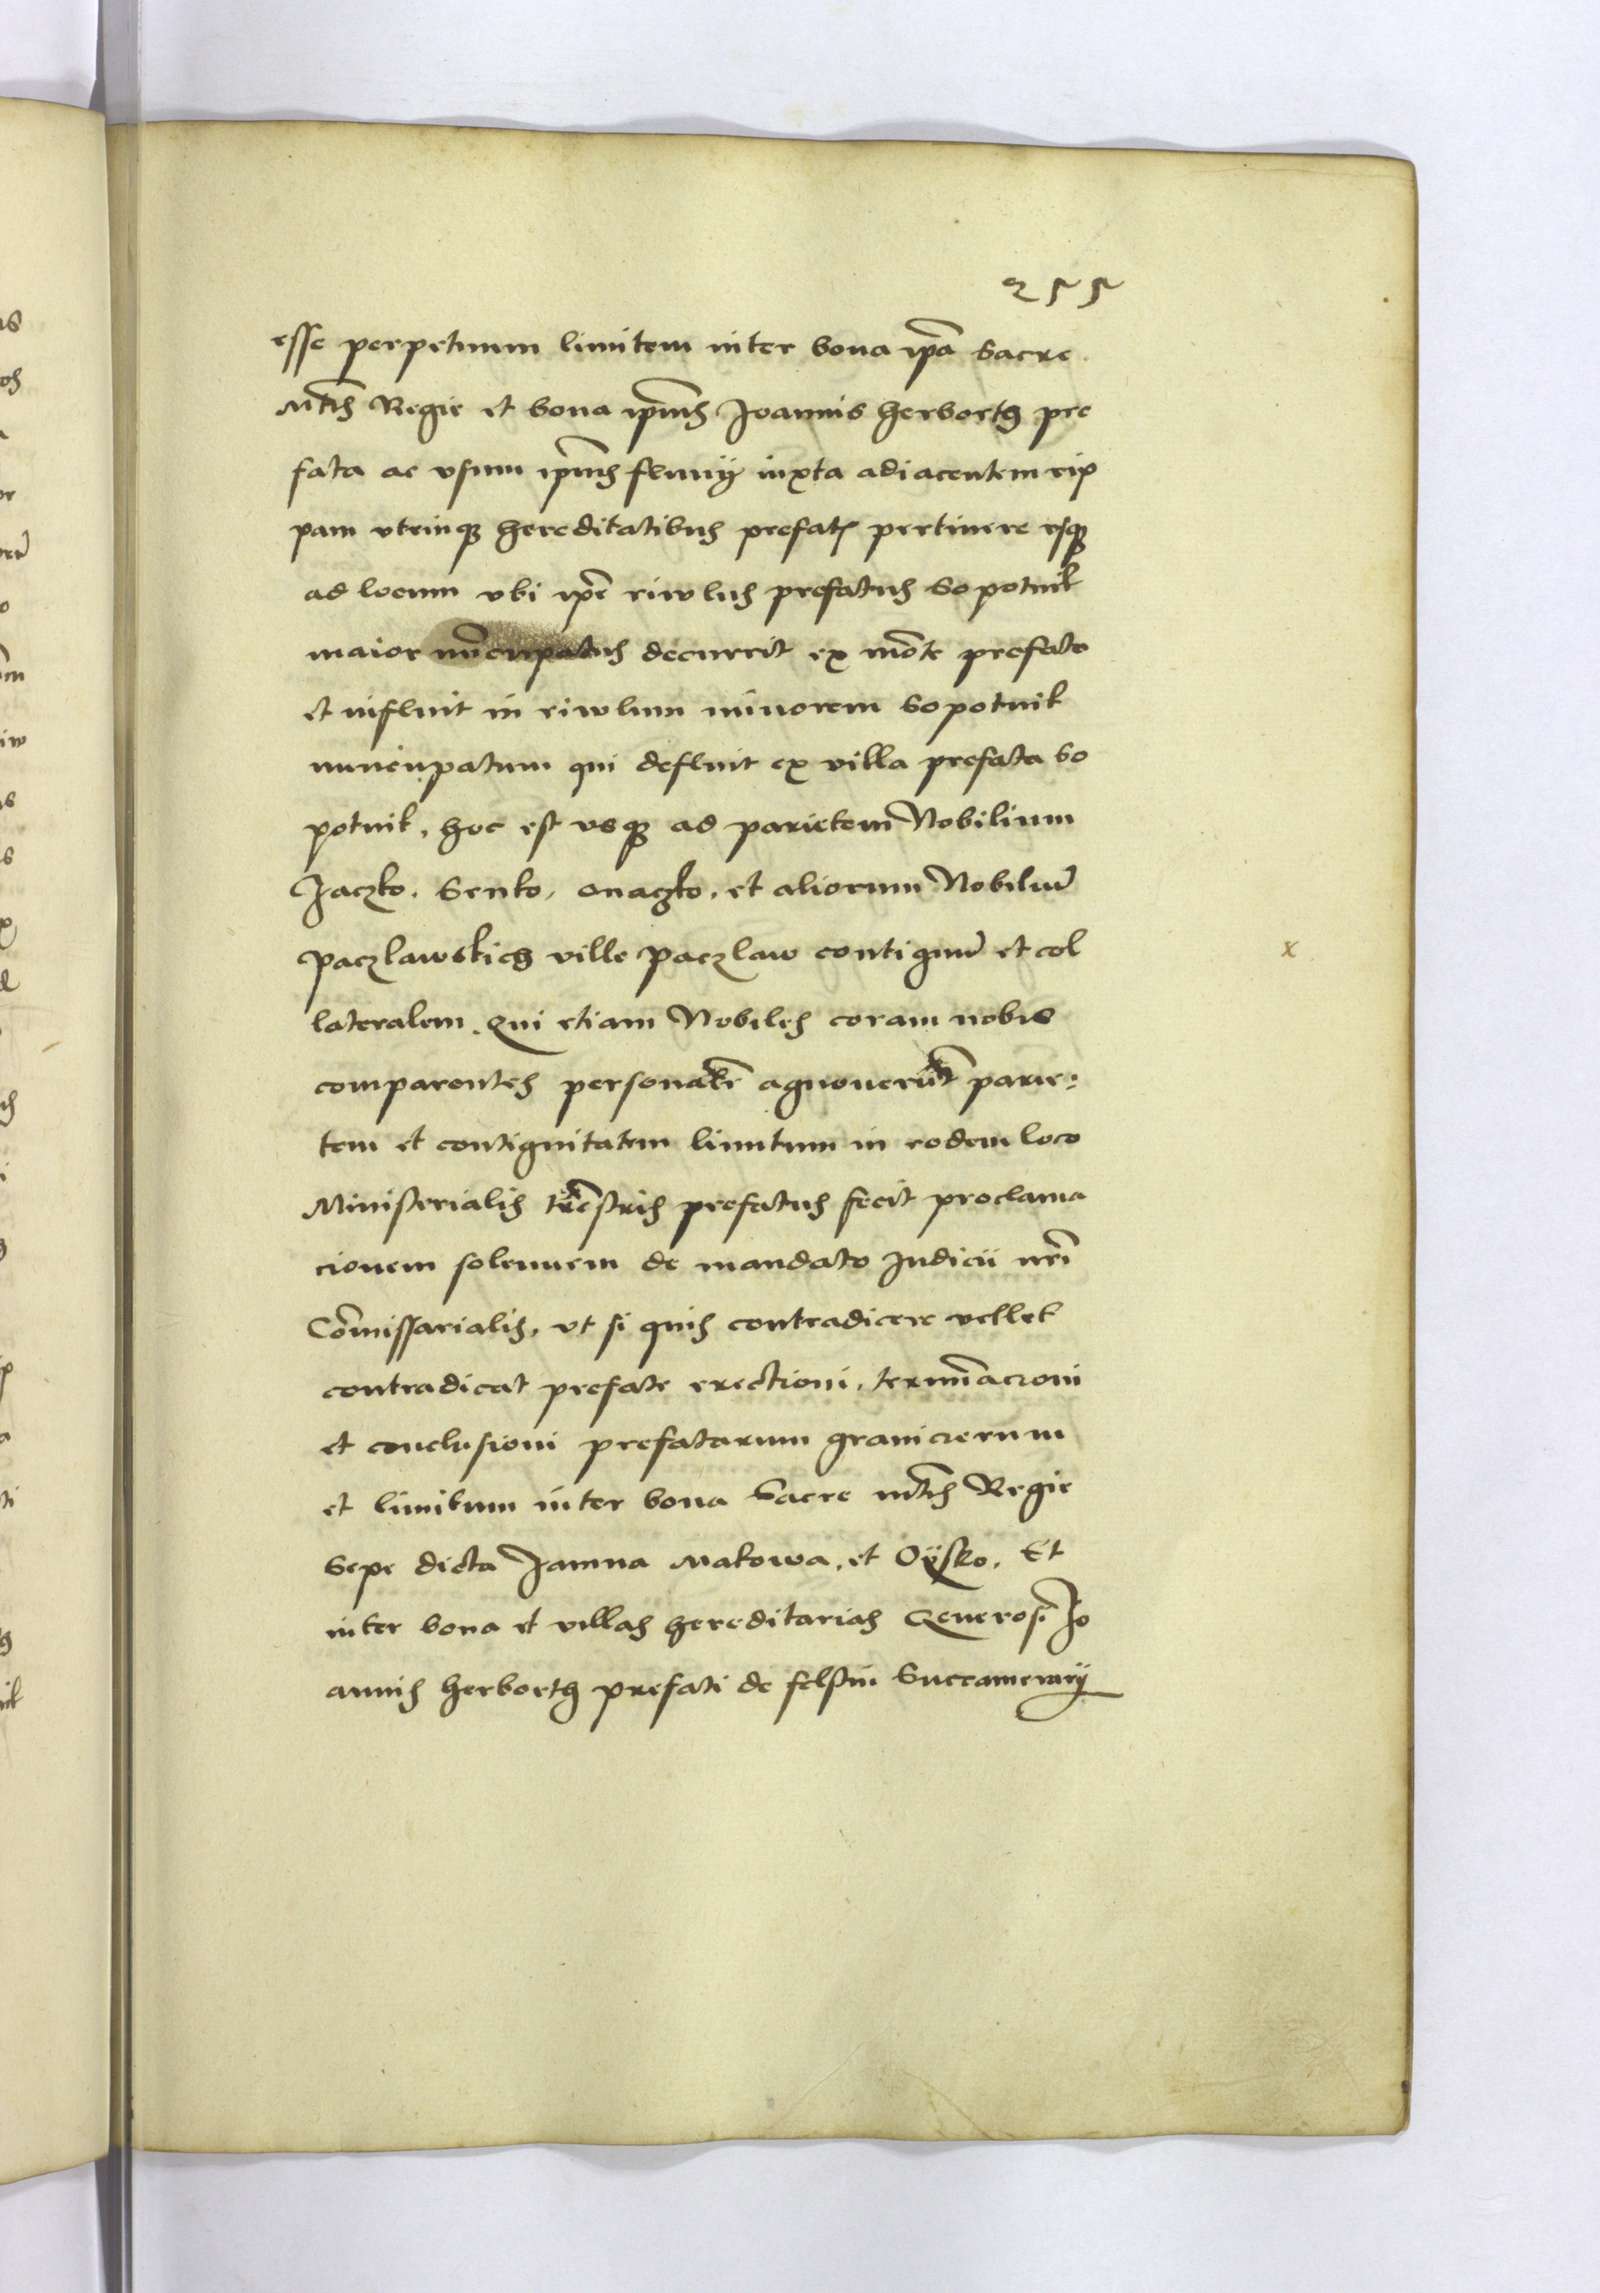 255
esse perpetuum limitem inter bona ip̃a Sacre
M̃tis Regie et bona ip̃ius Joannis herborth pre
fata ac vsum ip̃ius fluuij iuxta adiacentem rip
pam vtrinq̨ hereditatibus prefatꝭ pertinere vsq̨
ad locum vbi ip̃e riwlus prefatus Sopotnik
maior nũcupatus decurrit ex mõte prefato
et influit in riwlum minorem Sopotnik
nuncupatum qui defluit ex villa prefata So
potnik, hoc est vsq̨ ad parietem Nobilium
Jaczko. Senko, onaczko, et aliorum Nobiliũ
paczlawskich ville paczlaw contiguũ et col
lateralem. Qui etiam Nobiles coram nobis
comparentes personalr̃ agnouerũt parie:
tem et contiguitatem limitum in eodem loco
Ministerialis tr̃estris prefatus fecit proclama
cionem solennem de mandato Judicii nr̃i
Com̃issarialis, vt si quis contradicere vellet
contradicat prefate erectioni, termĩacioni
et conclusioni prefatarum granicierum
et limitum inter bona Sacre m̃tis Regie
Sepe dicta Jamna Makowa, et Oÿsko, Et
inter bona et villas hereditarias Generosi Jo
annis herborth prefati de felstin Succamerarij
x